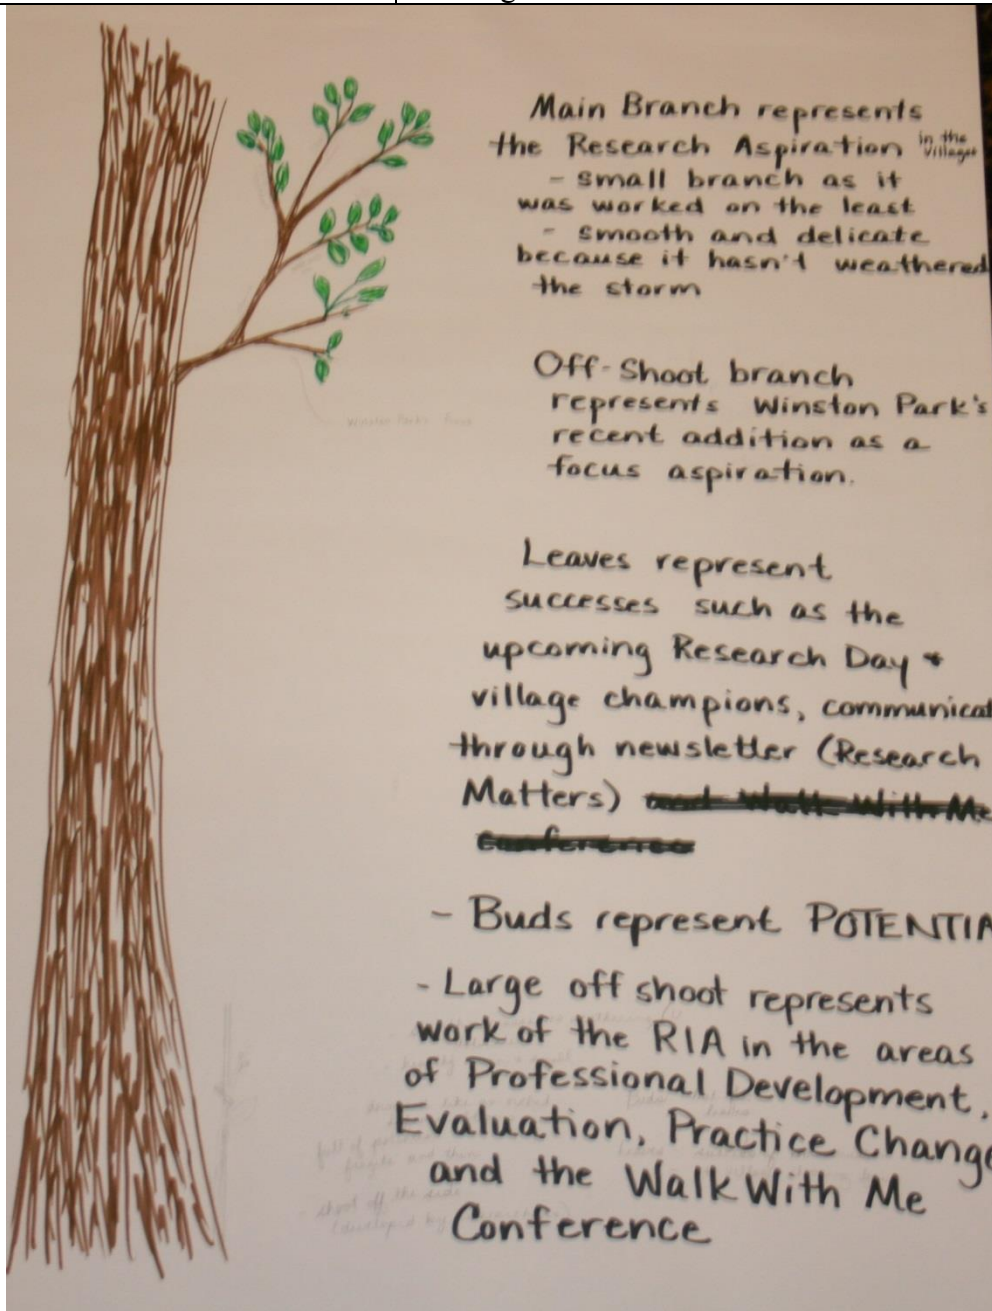 Main Branch represents
the Research Aspiration in the villages
- small branch as it
was worked on the least
- smooth and delicate
because it hasn't weathered
the storm
Off-Shoot branch
represents Winston Park's
recent addition as a
focus aspiration.
Leaves represent
successes such as the
upcoming Research Day +
village champions, communicat
through newsletter (Research
Matters) and Walk With Me
conference
- Buds represent POTENTIA
- Large off shoot represents
work of the RIA in the areas
of Professional Development,
Evaluation, Practice Change
and the Walk With Me
Conference